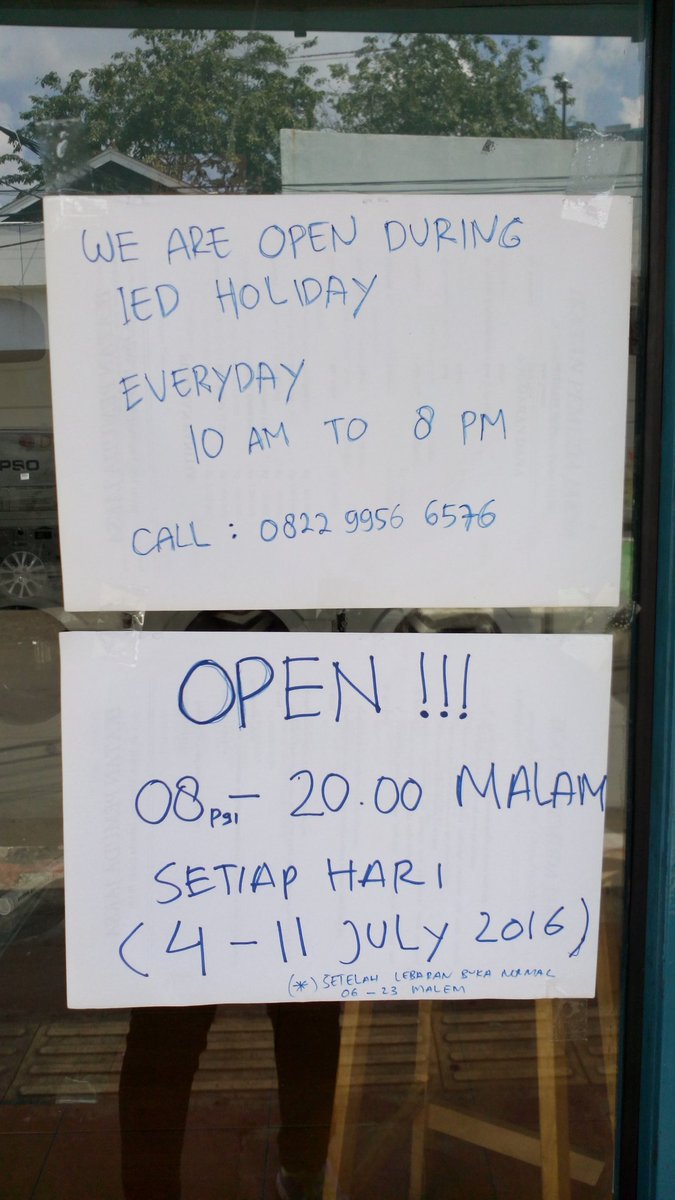 WE ARE OPEN DURING
IED HOLIDAY
EVERYDAY
10 AM TO 8 PM
CALL : 0822 9956 6576
OPEN !!!
08 pgi - 20.00 MALAM
SETIAP HARI
(4 - 11 JULY 2016)
(*) SETELAH LEBARAN BUKA NORMAL
06 - 23 MALEM
PSO